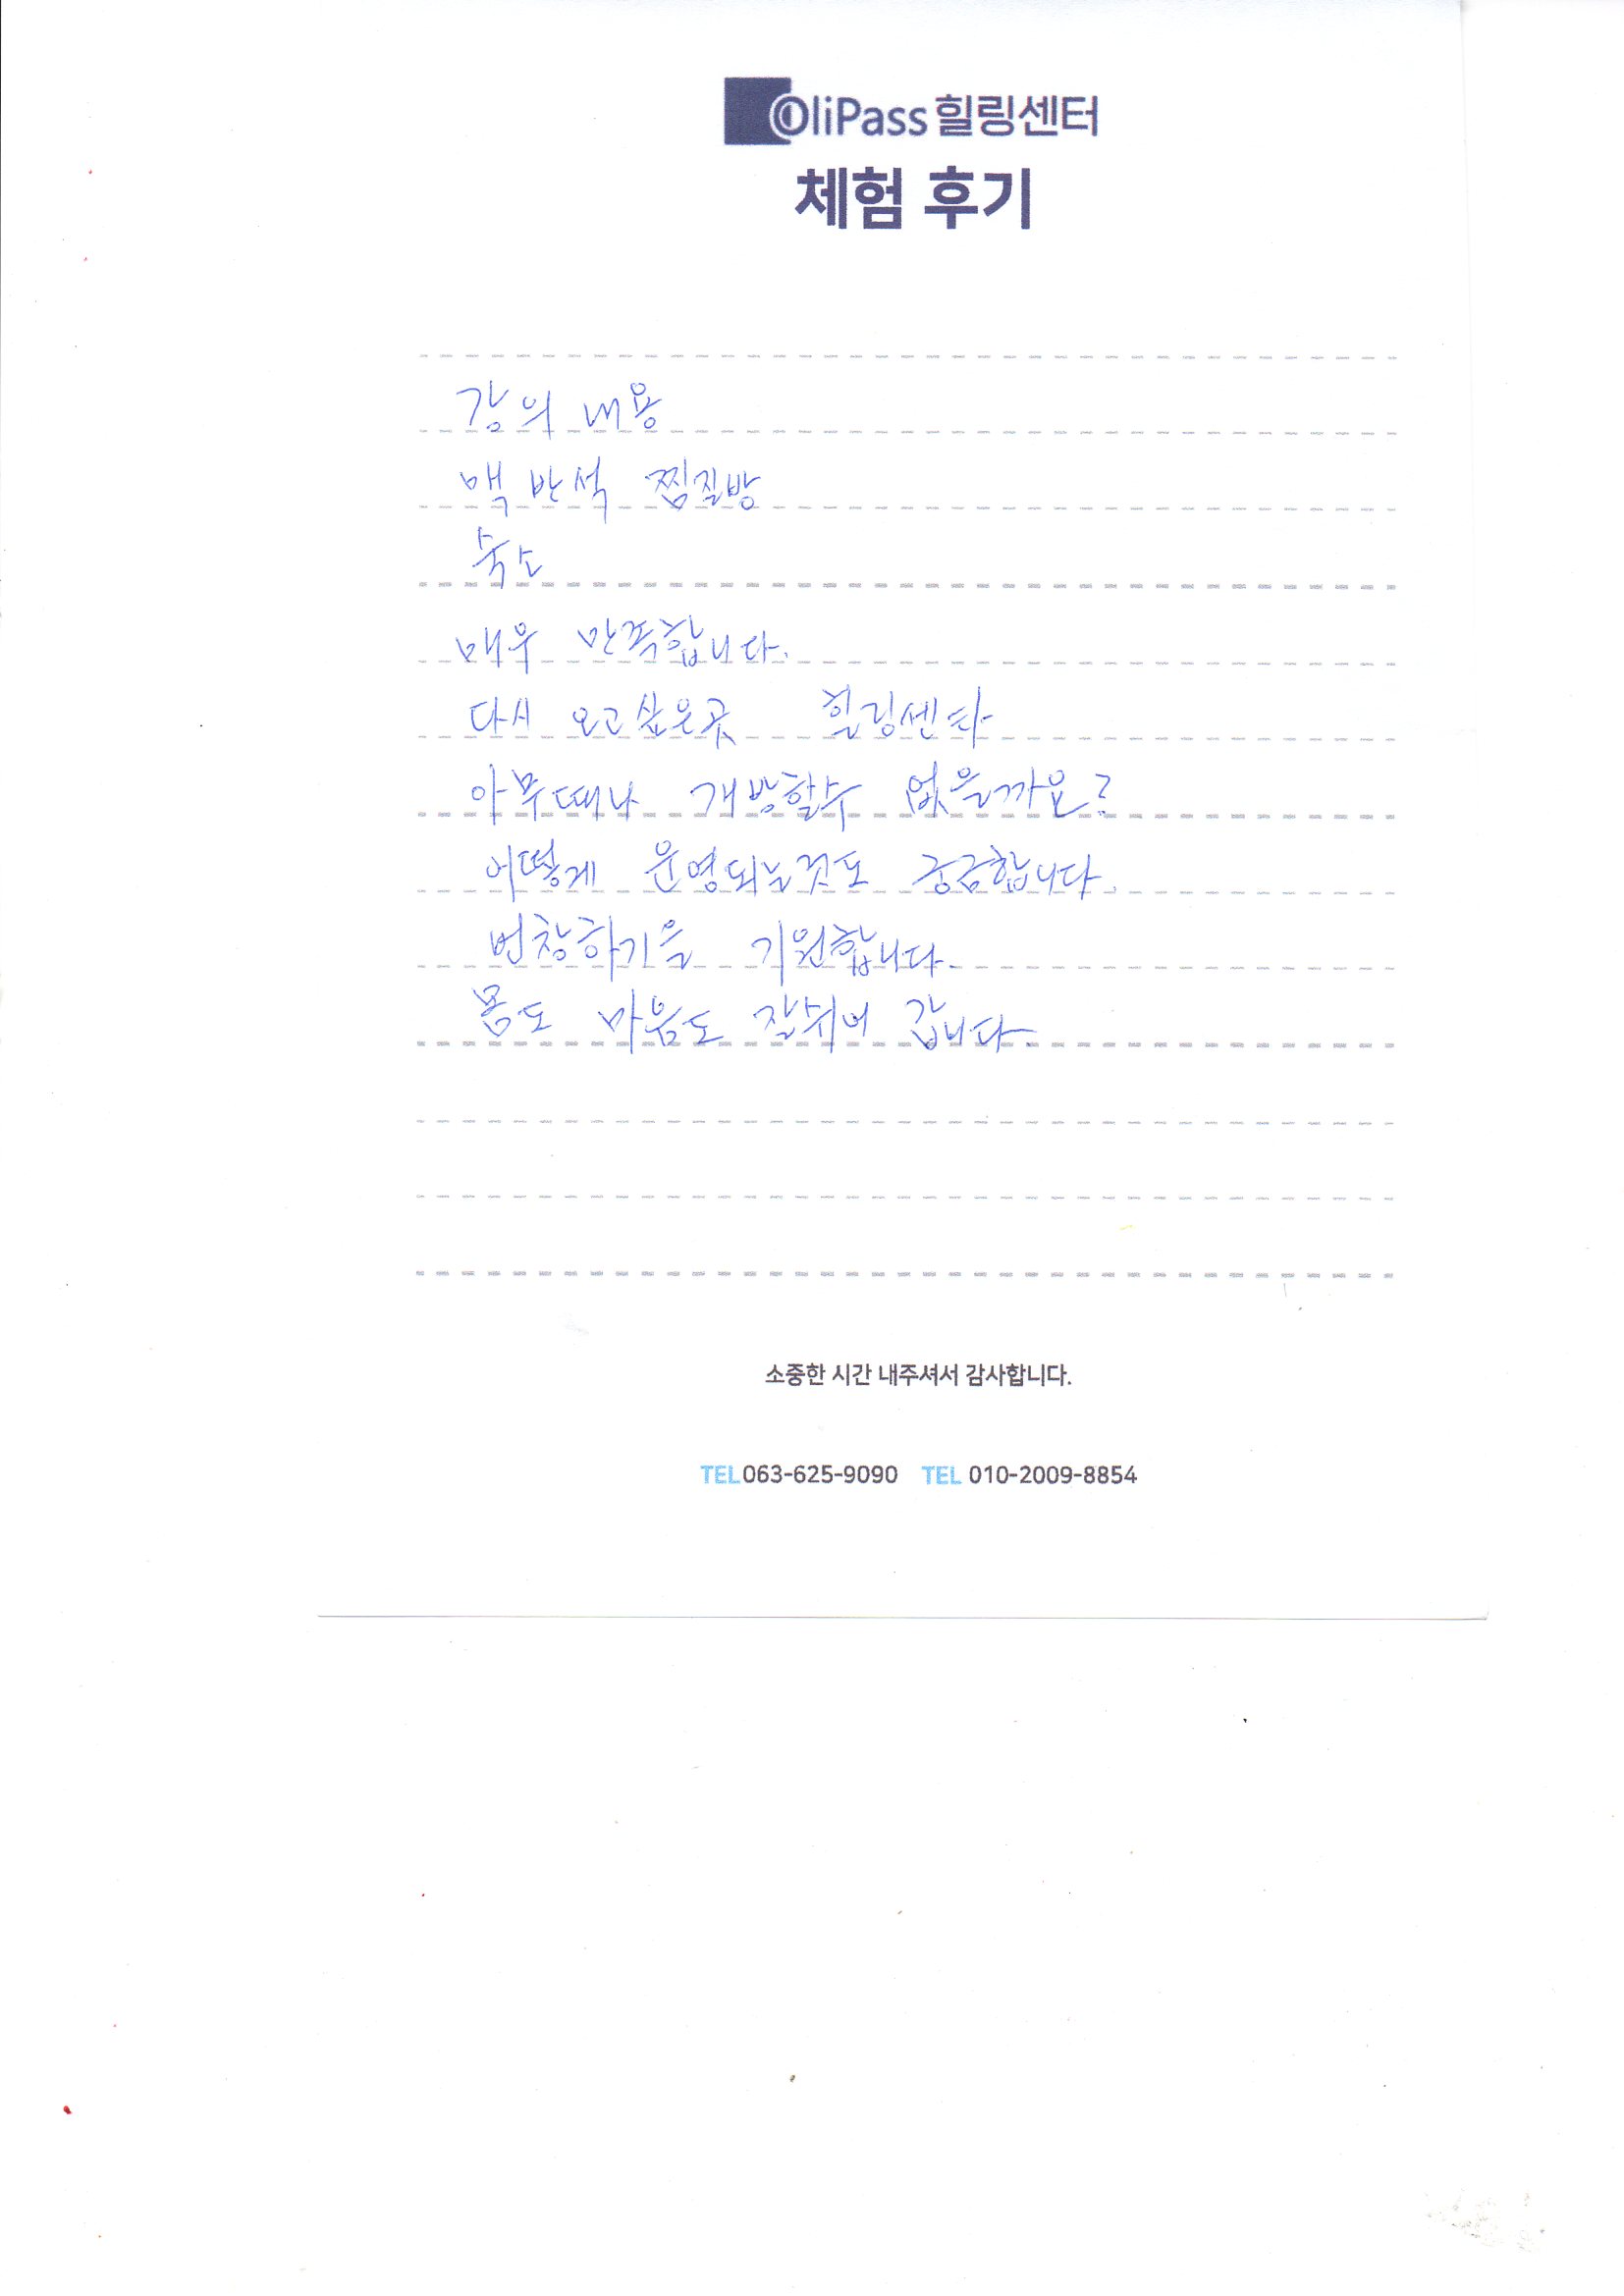 OliPass 힐링센터
체험 후기
강의 내용
맥반석 찜질방
숙소
매우 만족합니다.
다시 오고싶은곳 힐링센타
아무때나 개방할수 없을까요?
어떻게 운영되는것도 궁금합니다.
번창하기을 기원합니다.
몸도 마음도 잘쉬어 갑니다.
소중한 시간 내주셔서 감사합니다.
TEL 063-625-9090 TEL 010-2009-8854